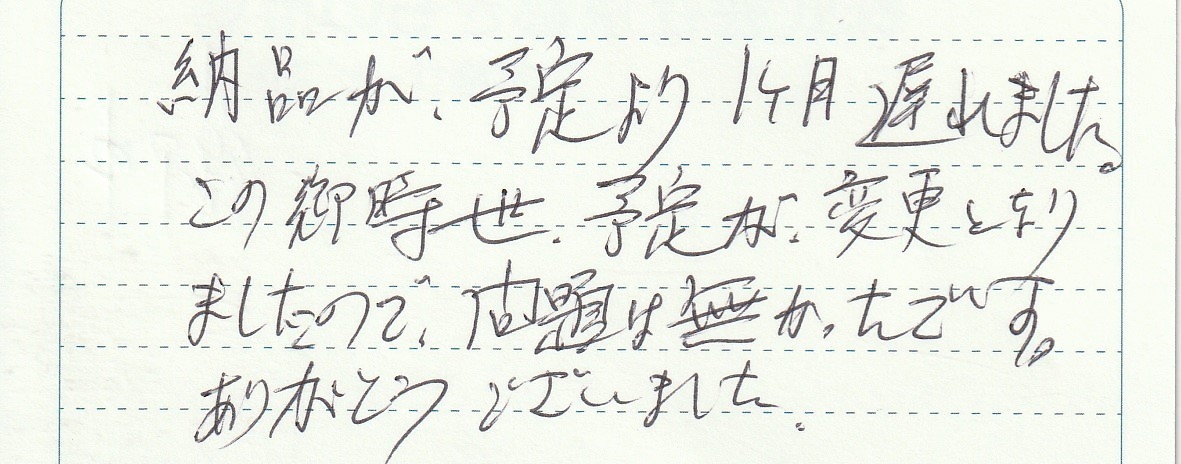 納品が、予定より1ケ月遅れました。
この御時世、予定が、変更となり
ましたので、問題は無かったです。
ありがとうございました。